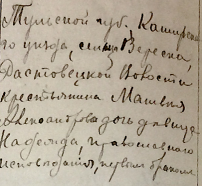 Тульской губ. Каширска
го уезда, сельца Верески,
Растовецкой волости
крестьянина Матвея
дочь девица
Надежда православного
исповедания, первым браком